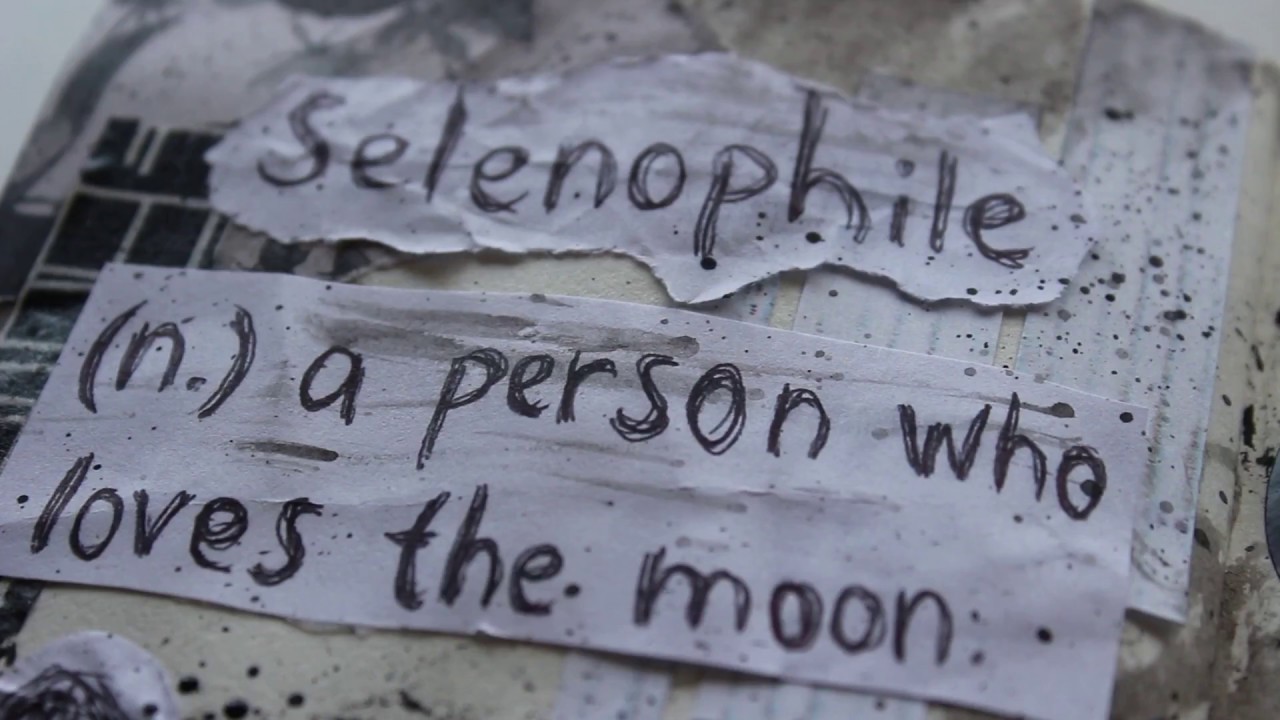 Selenophile
(n.) a person who
loves the moon.